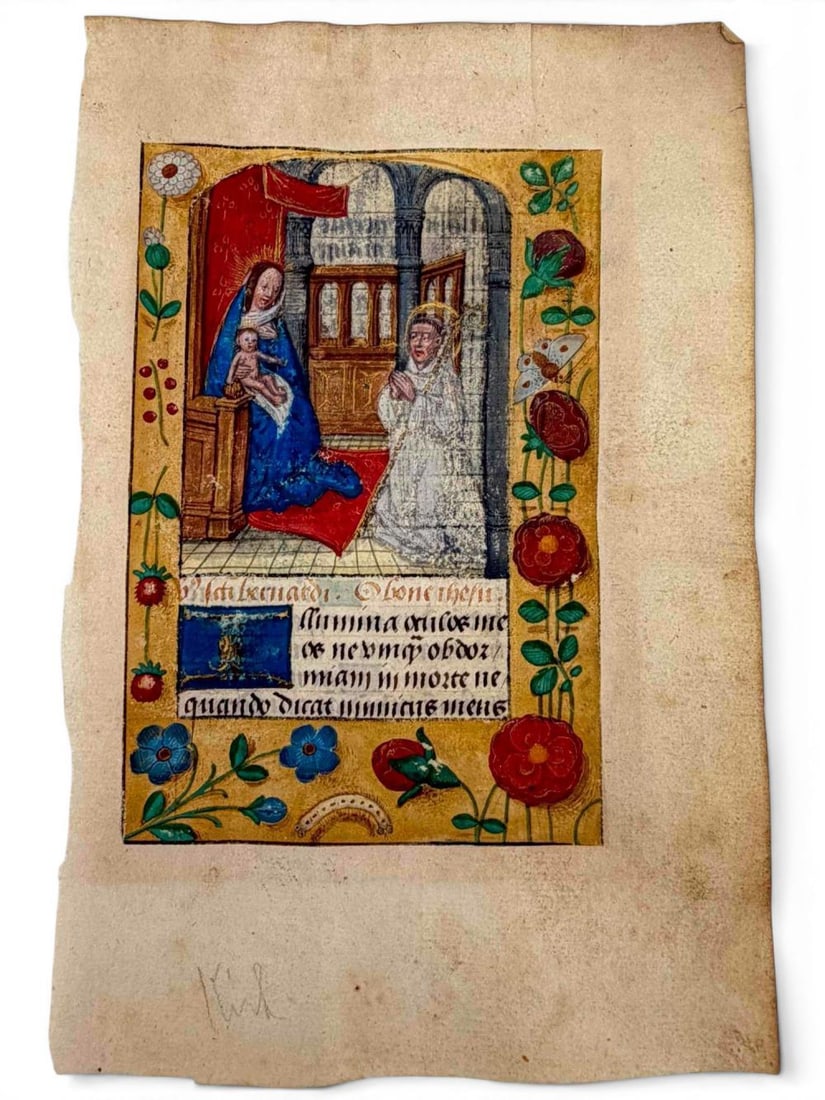 scti bernardi. O bone ihesu.
Illumina oculos me
os ne vnqȝ obdor/
miam in morte ne
quando dicat inimicus meus